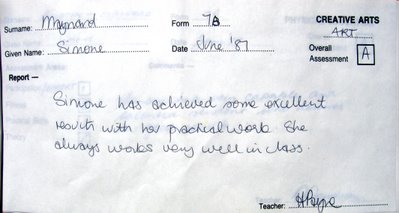 Surname: Maynard Form 7A CREATIVE ARTS
ART
Given Name: Simone Date June '87 Overall Assessment A
Report —
Simone has achieved some excellent
results with her practical work. She
always works very well in class.
Teacher: H Payne